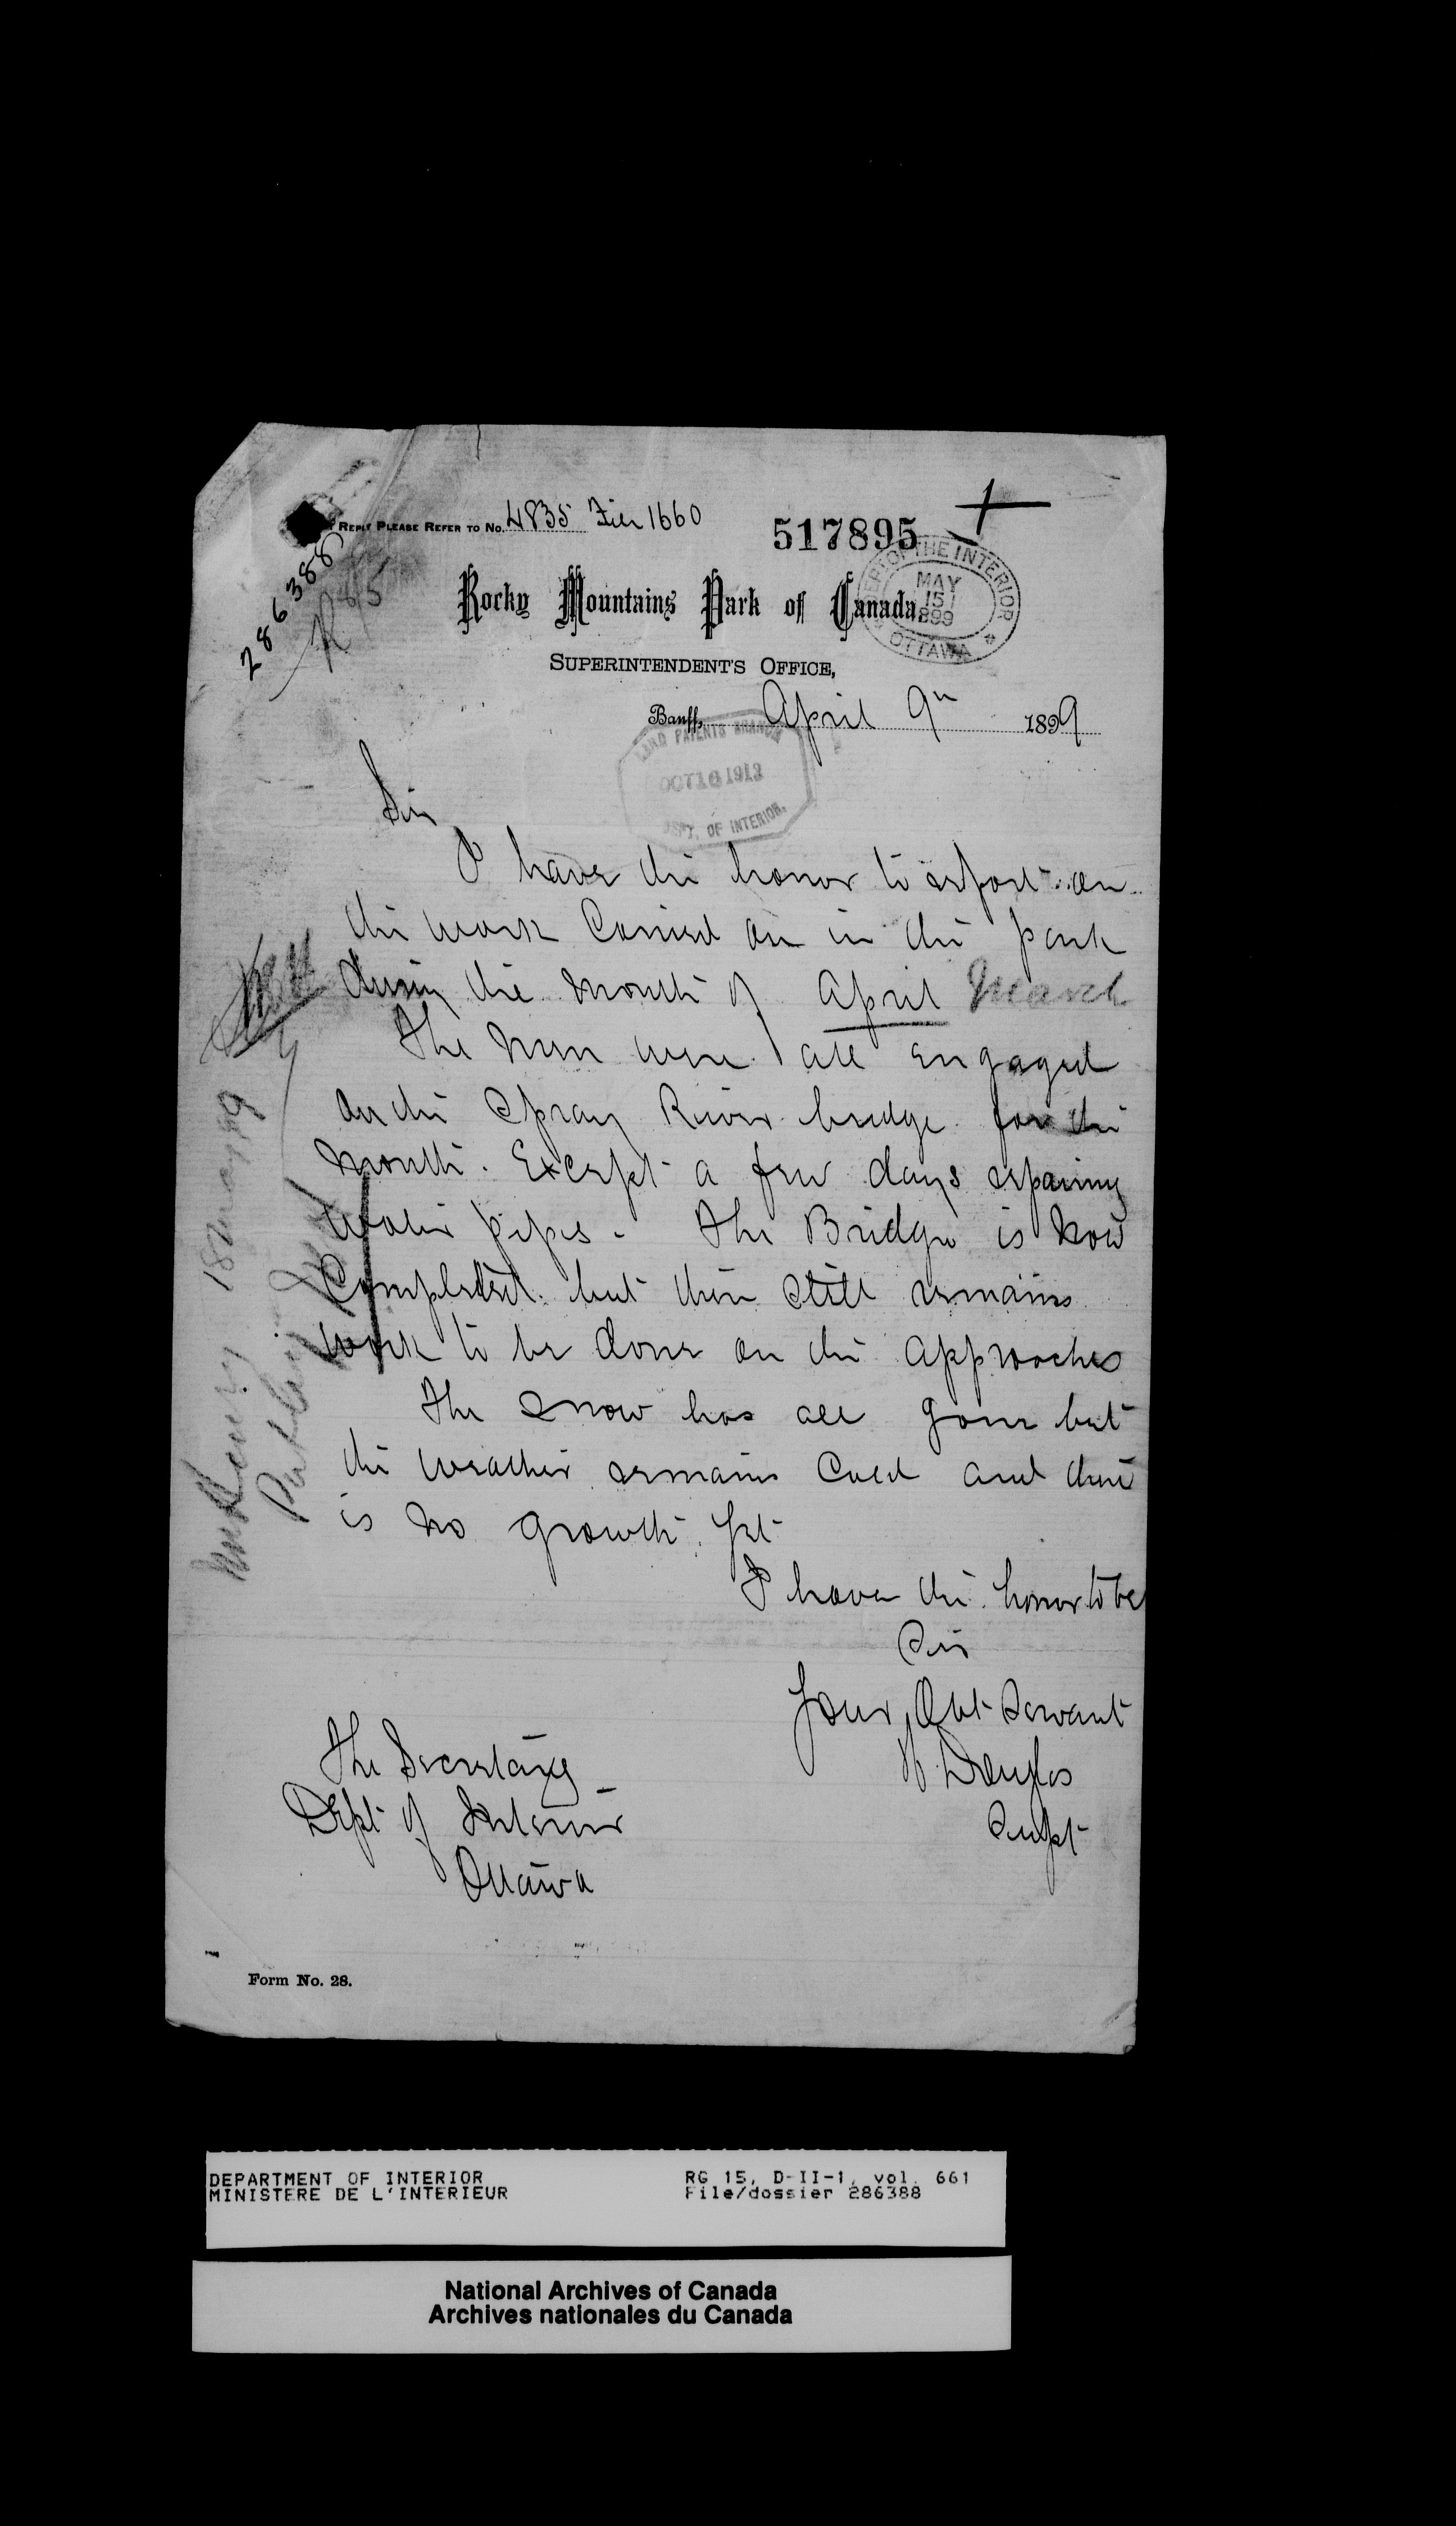 Reply Please Refer to No. 4835 File 1660
517895
286388
R 85
DEPT OF THE INTERIOR
MAY
15
1899
OTTAWA
Rocky Mountains Park of Canada
Superintendent's Office,
Banff, April 9th 1899
LAND PATENTS BRANCH
OCT 16 1913
DEPT. OF INTERIOR.
Sir
I have the honor to report on
the work Carried on in the park
during the month of April March
The men were all engaged
on the Spray River bridge for the
month. Except a few days repairing
Water pipes. The Bridge is now
Completed but there still remains
work to be done on the approaches
The snow has all gone but
the weather remains Cold and there
is no growth yet
I have the honor to be
Sir
Your Obt Servant
H Douglas
Supt
The Secretary
Dept of Interior
Ottawa
18 May 99
Form No. 28.
DEPARTMENT OF INTERIOR
MINISTERE DE L'INTERIEUR
RG 15, D-II-1, vol. 661
File/dossier 286388
National Archives of Canada
Archives nationales du Canada